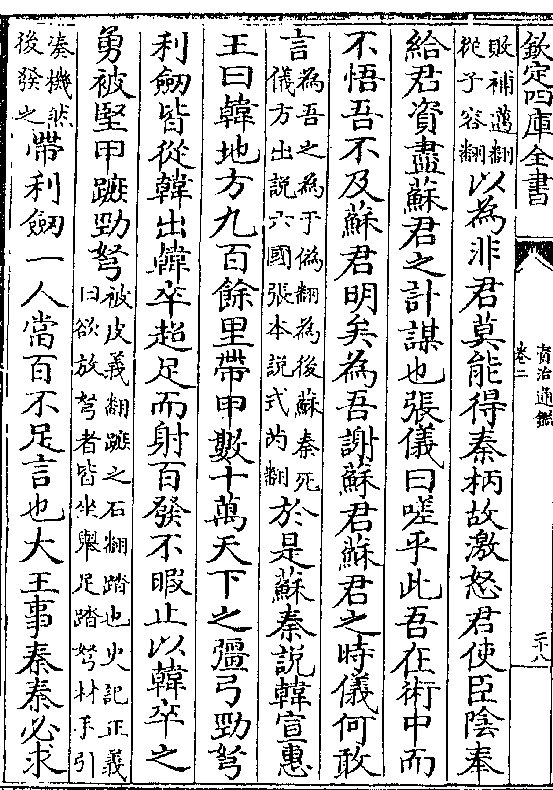 欽定四庫全書
資治通鑑
卷二
二十八
敗補邁翻
從子容翻
以為非君莫能得秦柄故激怒君使臣陰奉
給君資盡蘇君之計謀也張儀曰嗟乎此吾在術中而
不悟吾不及蘇君明矣為吾謝蘇君蘇君之時儀何敢
言
為吾之為于偽翻為後蘇秦死
儀方出說六國張本說式芮翻
於是蘇秦說韓宣惠
王曰韓地方九百餘里帶甲數十萬天下之彊弓勁弩
利劒皆從韓出韓卒超足而射百發不暇止以韓卒之
勇被堅甲蹠勁弩
被皮義翻蹠之石翻踏也史記正義
曰欲放弩者皆坐舉足踏弩材手引
湊機然
後發之
帶利劒一人當百不足言也大王事秦秦必求